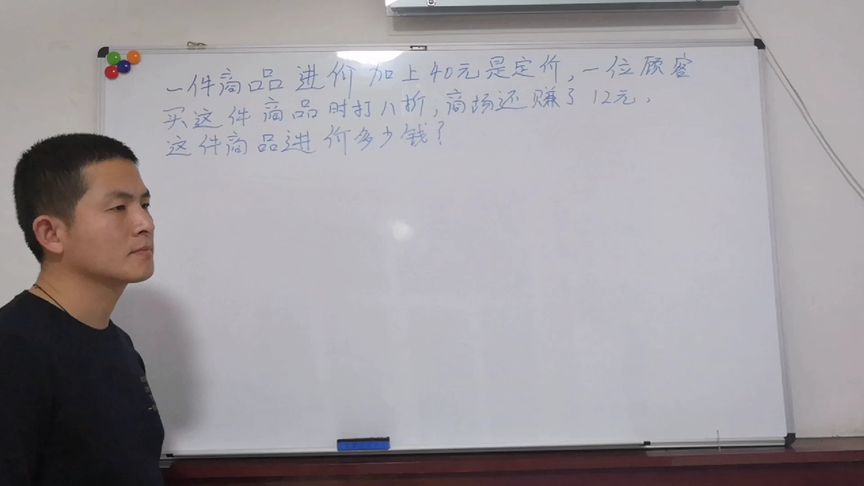 一件商品进价加上40元是定价,一位顾客
买这件商品时打八折,商场还赚了12元,
这件商品进价多少钱?